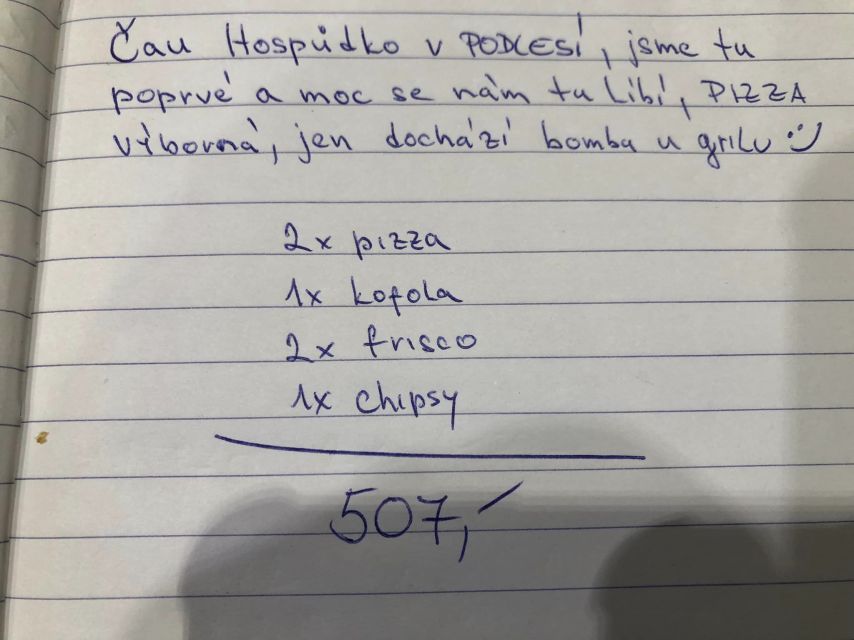 Čau Hospůdko v PODLESÍ, jsme tu
poprvé a moc se nám tu líbí, PIZZA
výborná, jen dochází bomba u grilu :)
2x pizza
1x kofola
2x frisco
1x chipsy
507,-